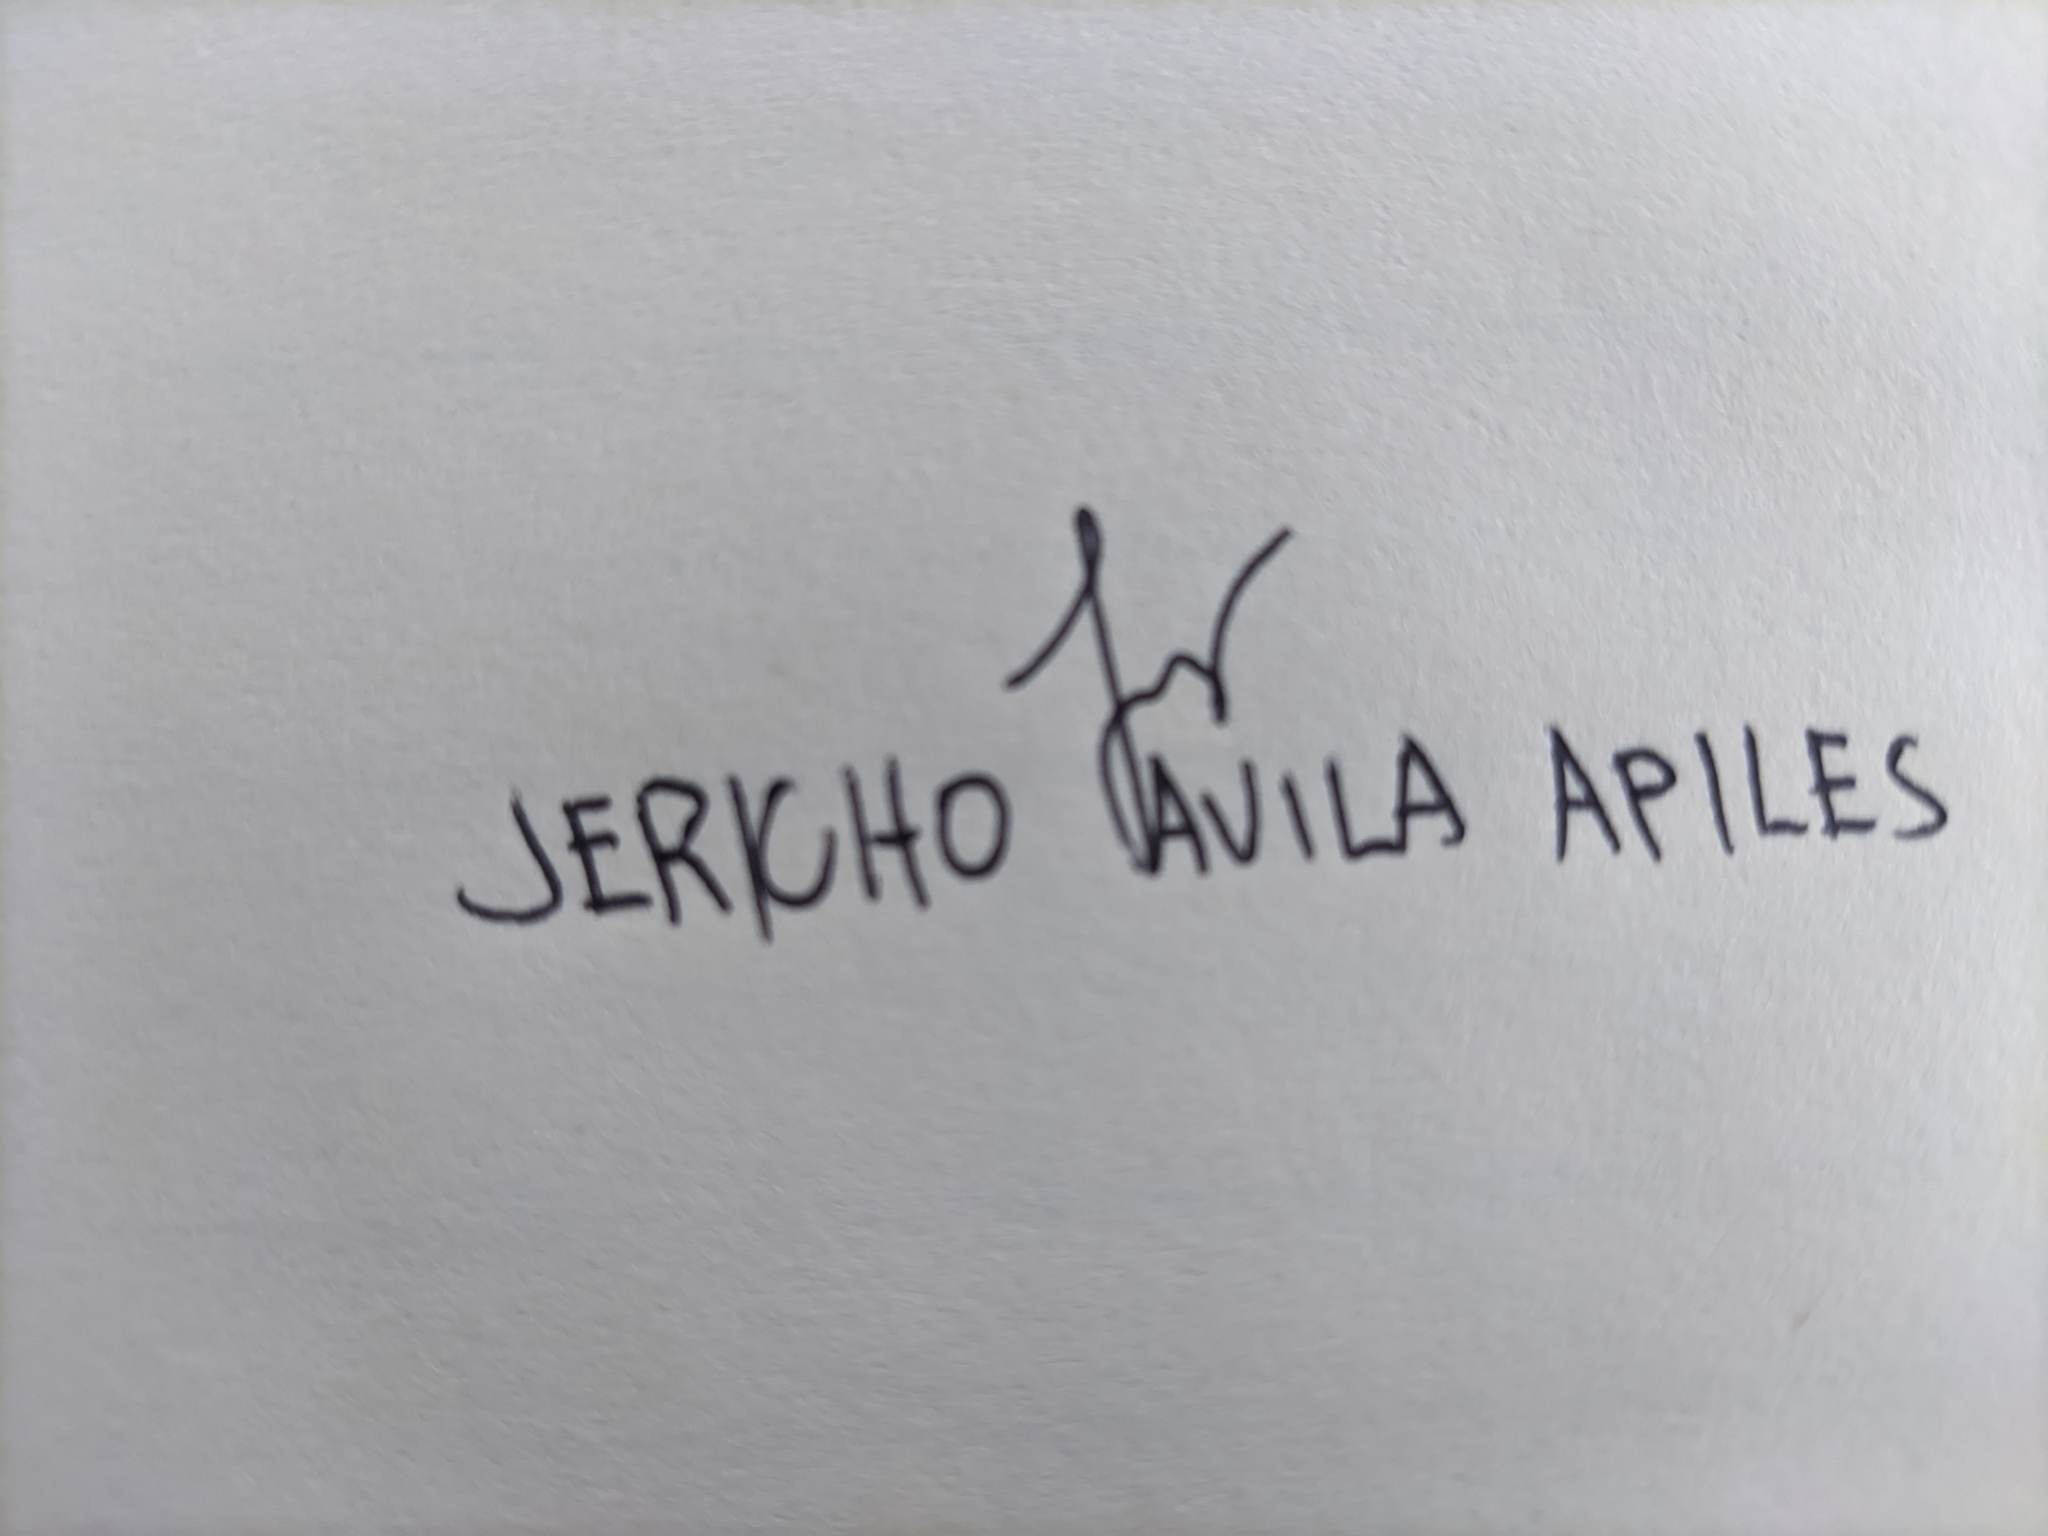 JERICHO AVILA APILES